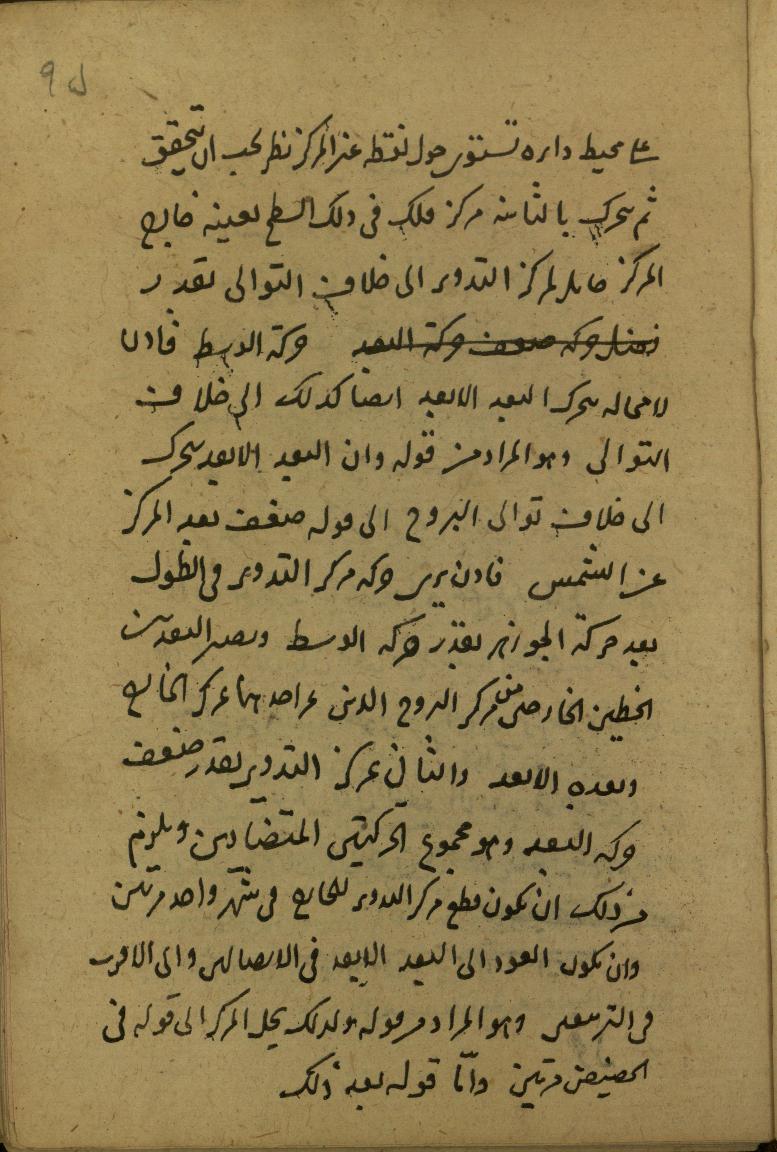 على محيط دائره تستوى حول نقطه غير المركز نظر يجب ان يتحقق
ثم يتحرك بالثانيه مركز فلك فى ذلك السطح بعينه خارج
المركز حامل لمركز التدوير الى خلاف التوالى بقدر
فضل حركه ضعف حركة البعد حركة الوسط فاذن
لا محاله يتحرك البعد الابعد ايضا كذلك الى خلاف
التوالى وهو المراد من قوله وان البعد الابعد يتحرك
الى خلاف توالى البروج الى قوله ضعف بعد المركز
عن الشمس فاذن يرى حركه مركز التدوير فى الطول
بعد حركة الجوزهر بقدر حركه الوسط ويصير البعد بين
الخطين الخارجين من مركز البروج الذين يمر احدهما بمركز الخارج
وبعده الابعد والثانى بمركز التدوير بقدر ضعف
حركه البعد وهو مجموع الحركتين المتضادين ويلزم
من ذلك ان يكون قطع مركز التدوير للخارج فى شهر واحد مرتين
وان يكون العود الى البعد الابعد فى الاتصالين والى الاقرب
فى التربيعين وهو المراد من قوله ولذلك يحل المركز الى قوله فى
الحضيض مرتين وامّا قوله بعد ذلك